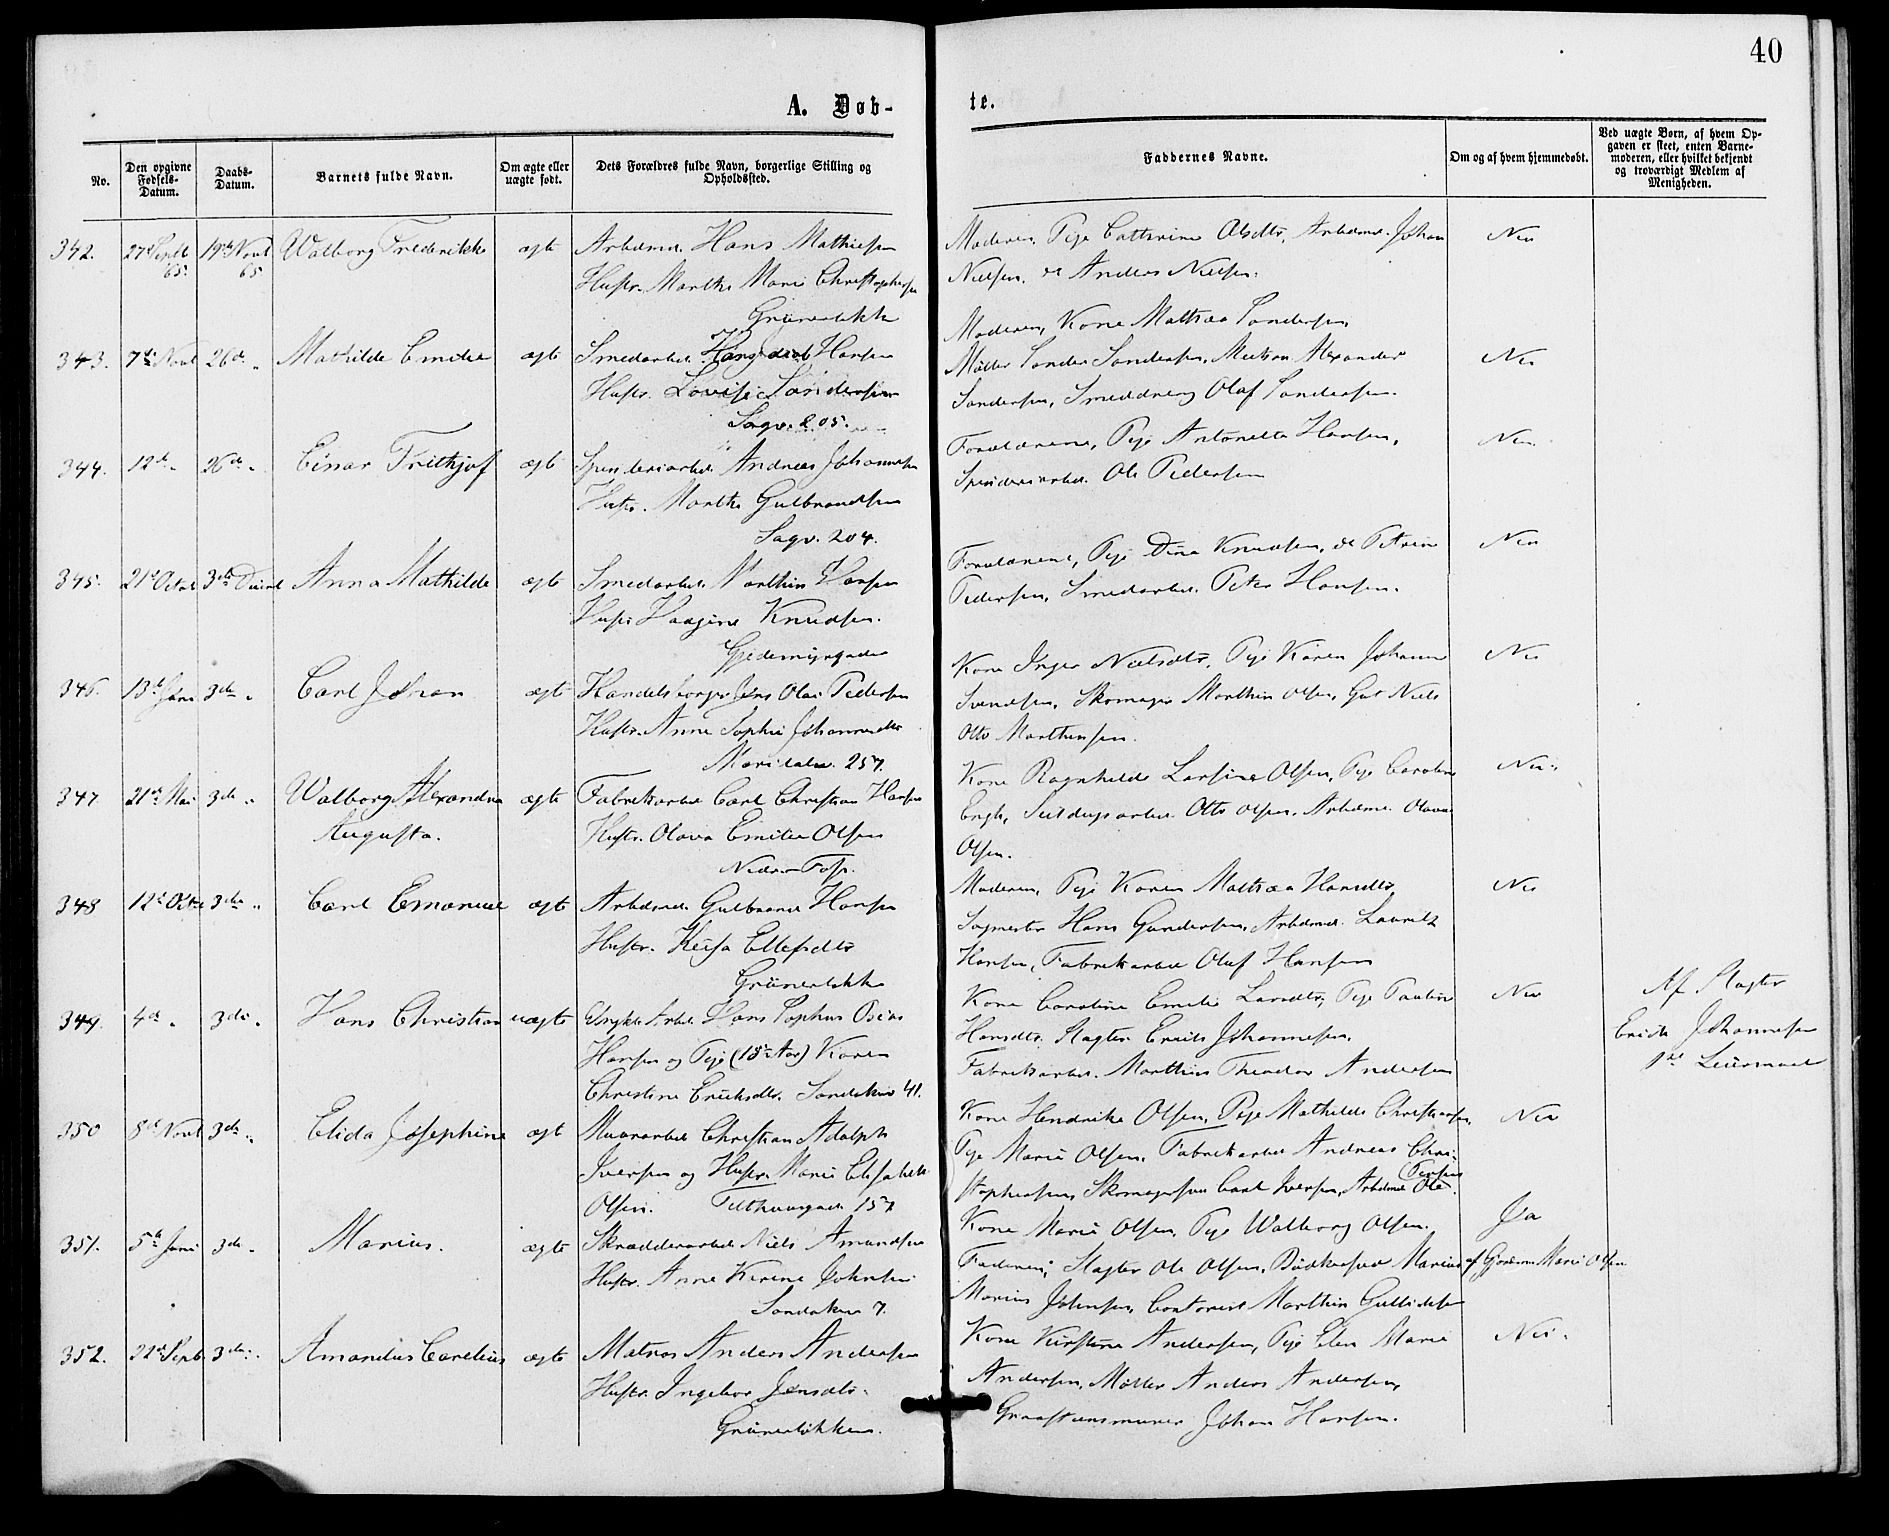 40
A. Døb-
te.
No.
Den opgivne Fødsels-Datum.
Daabs-Datum.
Barnets fulde Navn.
Om ægte eller uægte født.
Dets Forældres fulde Navn, borgerlige Stilling og Opholdssted.
Faddernes Navne.
Om og af hvem hjemmedøbt.
Ved uægte Børn, af hvem Opgaven er skeet, enten Barnemoderen, eller hvilket bekjendt og troværdigt Medlem af Menigheden.
342. 27de Septb 65. 19de Novb 65. Walborg Frederikke ægt Arbdmd. Hans Mathiesen
Hustr. Marthe Marie Christophersen
Grünerløkke
Moderen, Pige Cathrine Olsdtr, Arbdmd. Johan
Nielsen, do Anders Nielsen.
Nei
343. 7de Novb 26de " Mathilde Emilie ægt Smedarbd. Hans Jacob Hansen
Hustr. Lovise Sandersen
Sagv. 205.
Moderen, Kone Mathea Sandersen
Møller Sander Sandersen, Matros Alexander
Sandersen, Smeddreng Olaf Sandersen.
Nei
344. 12te " 26de " Einar Frithjof ægt Spinderiarbd. Andreas Johannesen
Hustr. Marthe Gulbrandsen
Sagv. 204.
Forældrene, Pige Antonette Hansen,
Spinderiarbd. Ole Pedersen
Nei
345. 21de Octob 3die Decmb Anna Mathilde ægt Smedarbd. Marthin Hansen
Hustr Haagine Knudsen.
Gjedemyrsgaden
Forældrene, Pige Dina Knudsen, do Petrine
Pedersen, Smedarbd. Peter Hansen.
Nei
346. 13de Juni 3die " Carl Johan ægt Handelsborger Jens Olai Pedersen
Hustr. Anne Sophie Johannesdtr
Maridalsv. 257.
Kone Inger Nielsdtr, Pige Karen Johanne
Svendsen, Skomager Marthin Olsen, Gut Niels
Otto Marthinsen.
Nei
347. 21de Mai 3die " Walborg Alexandra
Augusta.
ægte Fabrikarbd. Carl Christian Hansen
Hustr. Olava Emilie Olsen
Nedre Foss.
Kone Ragnhilde Larsine Olsen, Pige Caroline
Engh, Seildugsarbd. Otto Olsen, Arbdmd. Olaus
Olsen.
Nei.
348 12te Octb 3die " Carl Emanuel ægt Arbdmd. Gulbrand Hansen
Hustr. Kaisa Ellefsdtr
Grünerløkke
Moderen, Pige Karen Mathea Hansdtr,
Sagmester Hans Gundersen, Arbdmd. Lauritz
Hansen, Fabrikarbd Oluf Hansen
Nei
349. 4de " 3die " Hans Christian uægte Hans Sophus
Hansen og Pige (18de Aar) Karen
Christine Eriksdtr. Sandaker 41.
Kone Caroline Emilie Larsdtr, Pige Pauline
Hansdtr. Slagter Erick Johannesen,
Fabrikarbd. Marthin Theodor Andersen
Nei
Af Slagter
Erick Johannesen
1ste Leiermaal
350 8de Novb 3die " Elida Josephine ægt Murarbd Christian Adolph
Iversen og Hustr. Marie Elisabeth
Olsen. Tilthuusgad. 157
Kone Hendrike Olsen, Pige Mathilde Christiansen,
Pige Marie Olsen, Fabrikarbd Andreas Chri-
stophersen, Skomagersvend Carl Iversen, Arbdmd Ole
Nei
351. 5te Juni 3die " Marius. ægte Skrædderarbd. Niels Amundsen
Hustr. Anne Kirine Johnsen
Sandaker 7.
Kone Marie Olsen, Pige Walborg Olsen.
Faderen, Slagter Ole Olsen, Bødkersvd Marius
Marius Johnsen, Contorist Marthin Gullichsen
Ja
af Gjordem. Marie Olsen
352. 22de Septb. 3die " Amandus Carelius ægte Matros Anders Andersen
Hustr. Ingebor Jensdtr.
Grünerløkken.
Kone Kirstine Andersen, Pige Elen Marie
Andersen, Møller Anders Andersen,
Graasteensmurer Johan Hansen.
Nei.